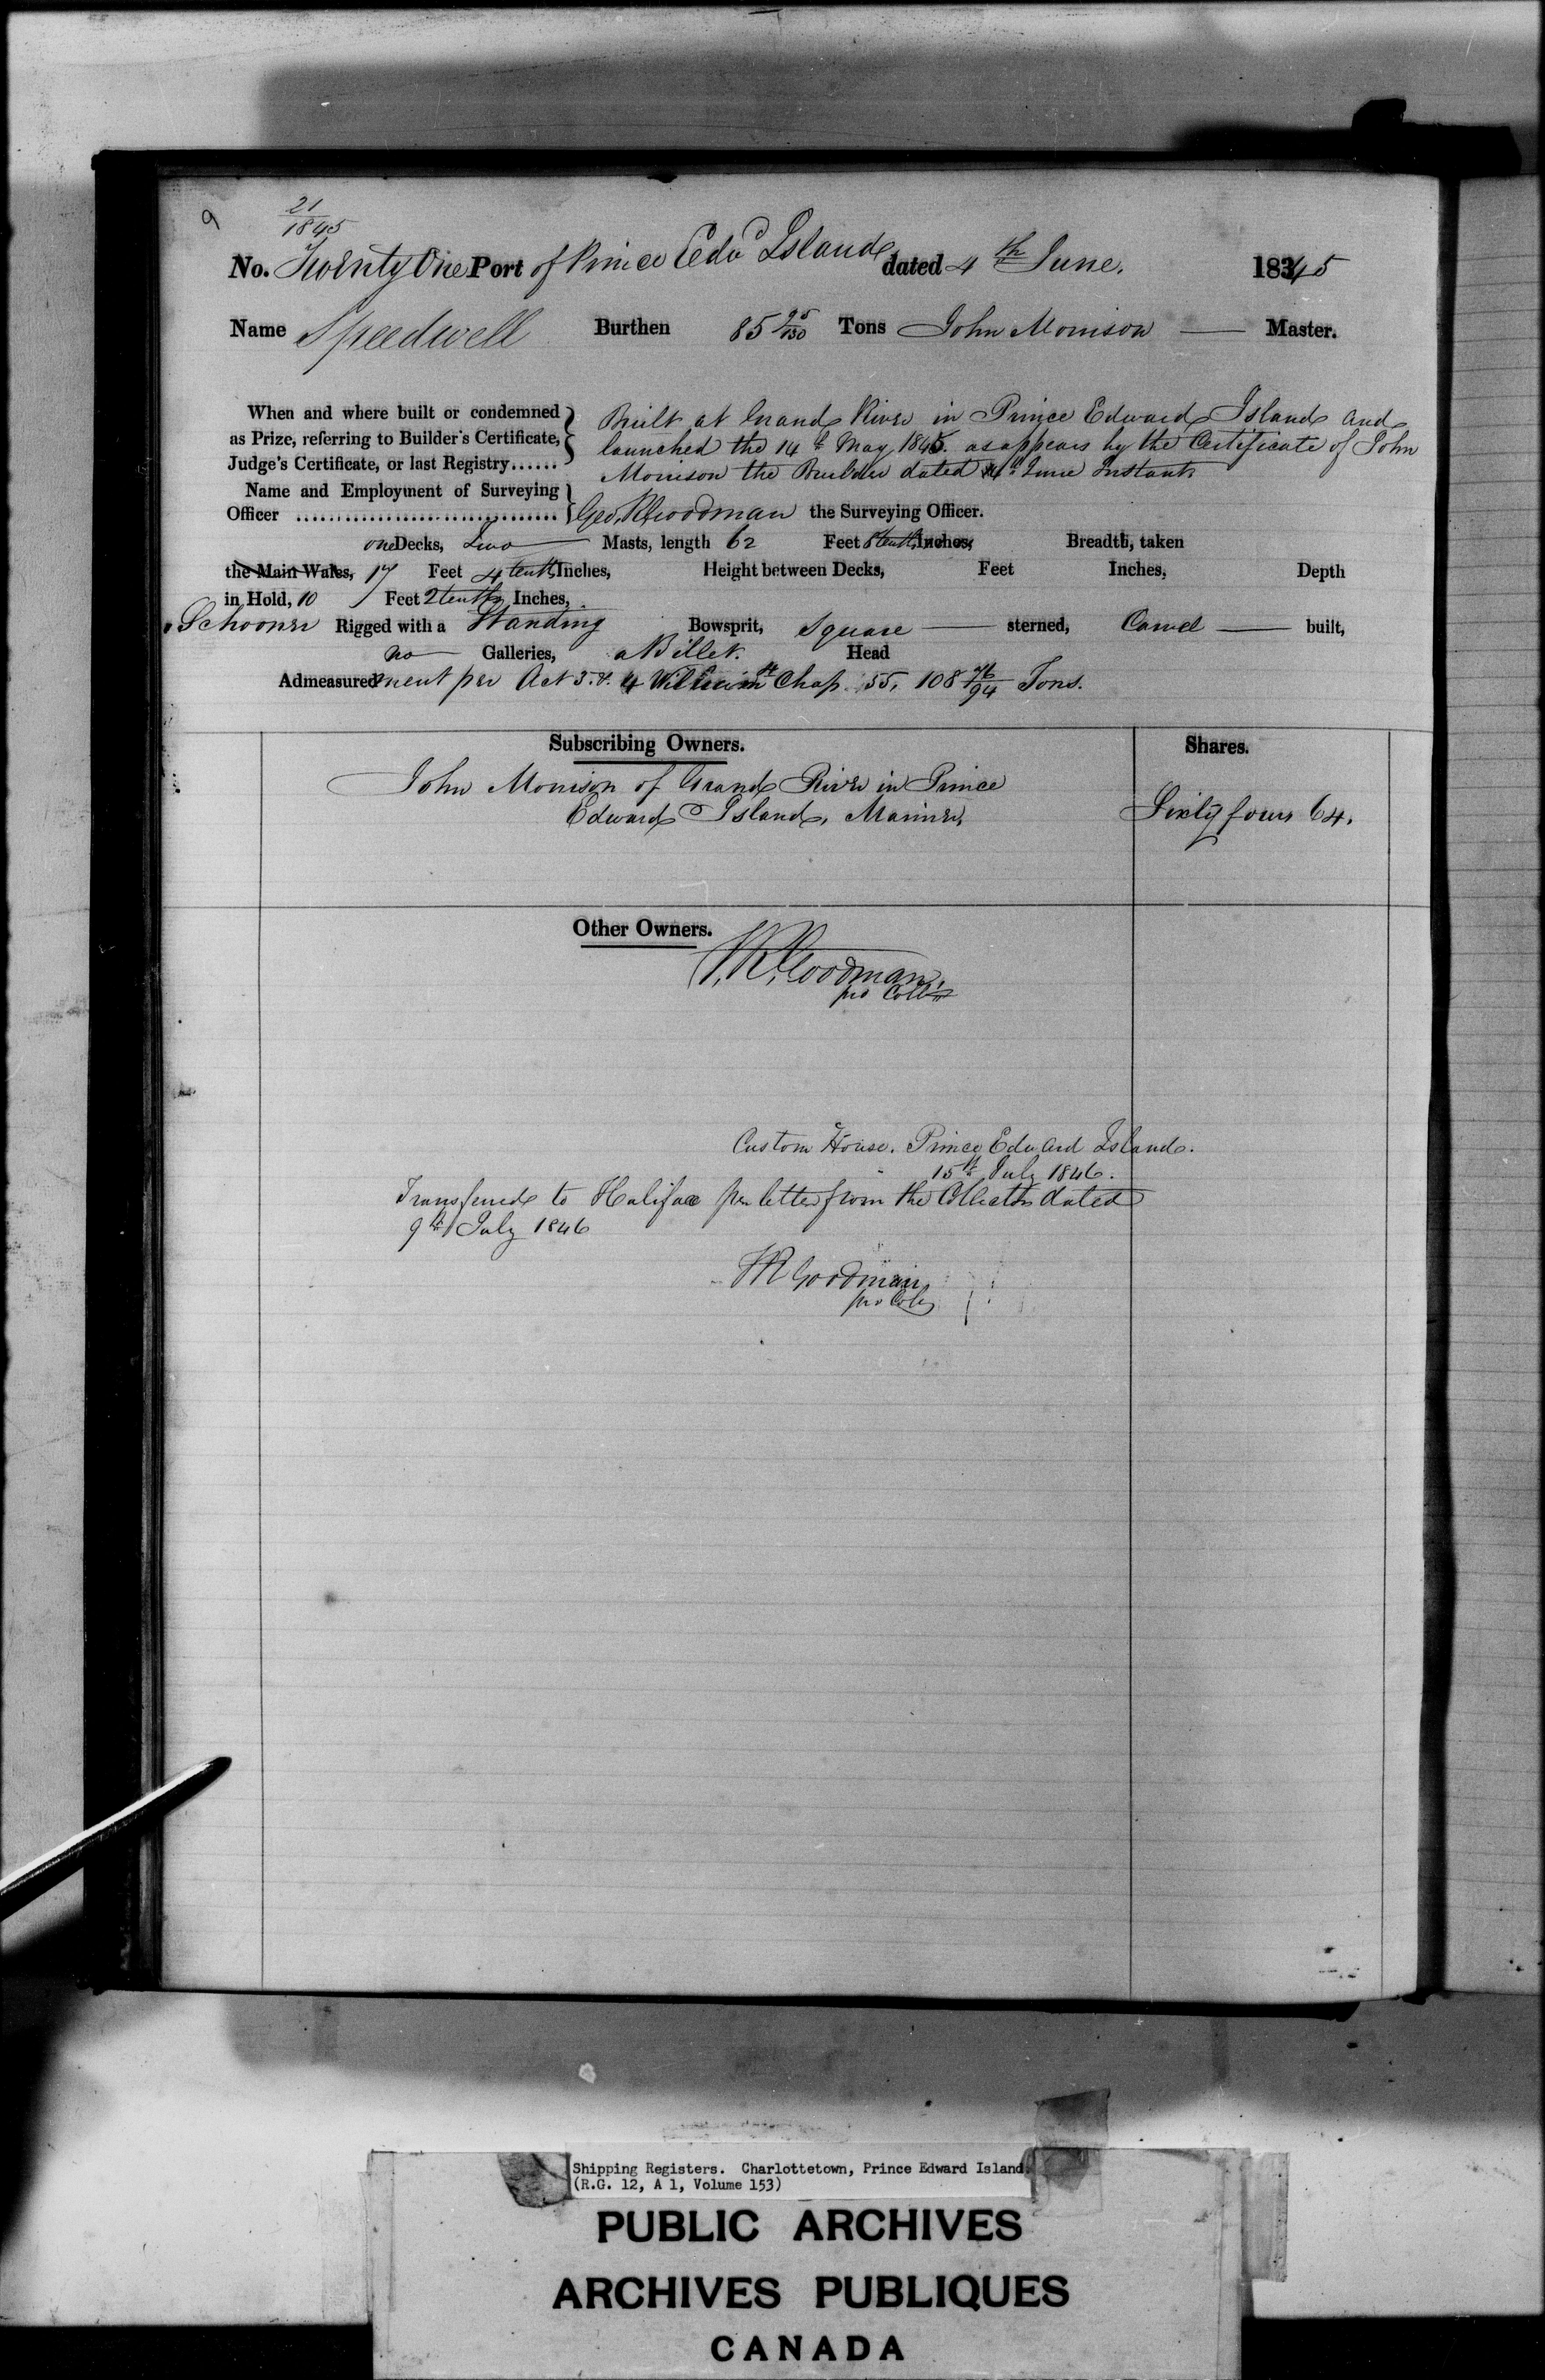 9
21
1845
No. Twenty One Port of Prince Edwd Island dated 4th June. 1845
Name Speedwell Burthen 85 95/130 Tons John Morrison — Master.
When and where built or condemned as Prize, referring to Builder's Certificate, Judge's Certificate, or last Registry......
Built at Grand River in Prince Edward Island and
launched the 14th May 1845. as appears by the Certificate of John
Morrison the Builder dated 4th June Instant
Name and Employment of Surveying
Officer .................................. Geo. R Goodman the Surveying Officer.
one Decks, Two — Masts, length 62 Feet 8 tenths Inches, Breadth, taken
the Main Wales, 17 Feet 4 tenths Inches, Height between Decks, Feet Inches, Depth
in Hold, 10 Feet 2 tenths Inches,
Schooner Rigged with a Standing Bowsprit, Square — sterned, Carvel — built,
no — Galleries, a Billet. Head
Admeasurement per Act 3. & 4 William 4th Chap. 55, 108 76/94 Tons.
Subscribing Owners. Shares.
John Morrison of Grand River in Prince
Edward Island, Mariner, Sixty four 64.
Other Owners.
Goodman
pro Collr
Custom House. Prince Edward Island.
15th July 1846.
Transferred to Halifax per letter from the Collector dated
9th July 1846
Goodman
pro Colr
Shipping Registers. Charlottetown, Prince Edward Island.
(R.G. 12, A 1, Volume 153)
PUBLIC ARCHIVES
ARCHIVES PUBLIQUES
CANADA